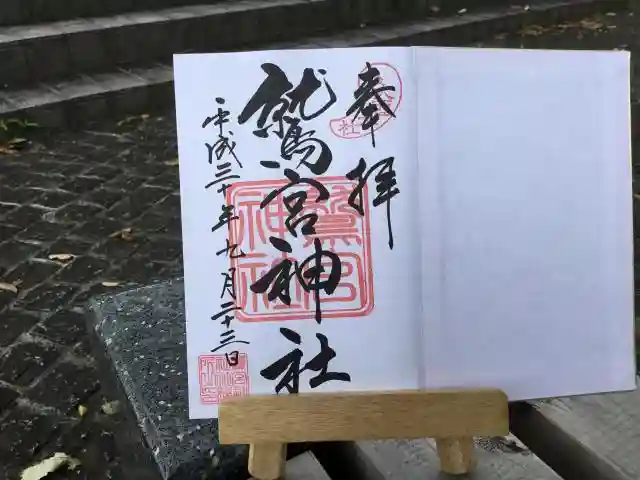 奉拝
鷲宮神社
平成三十年九月二十三日
鷲宮神社